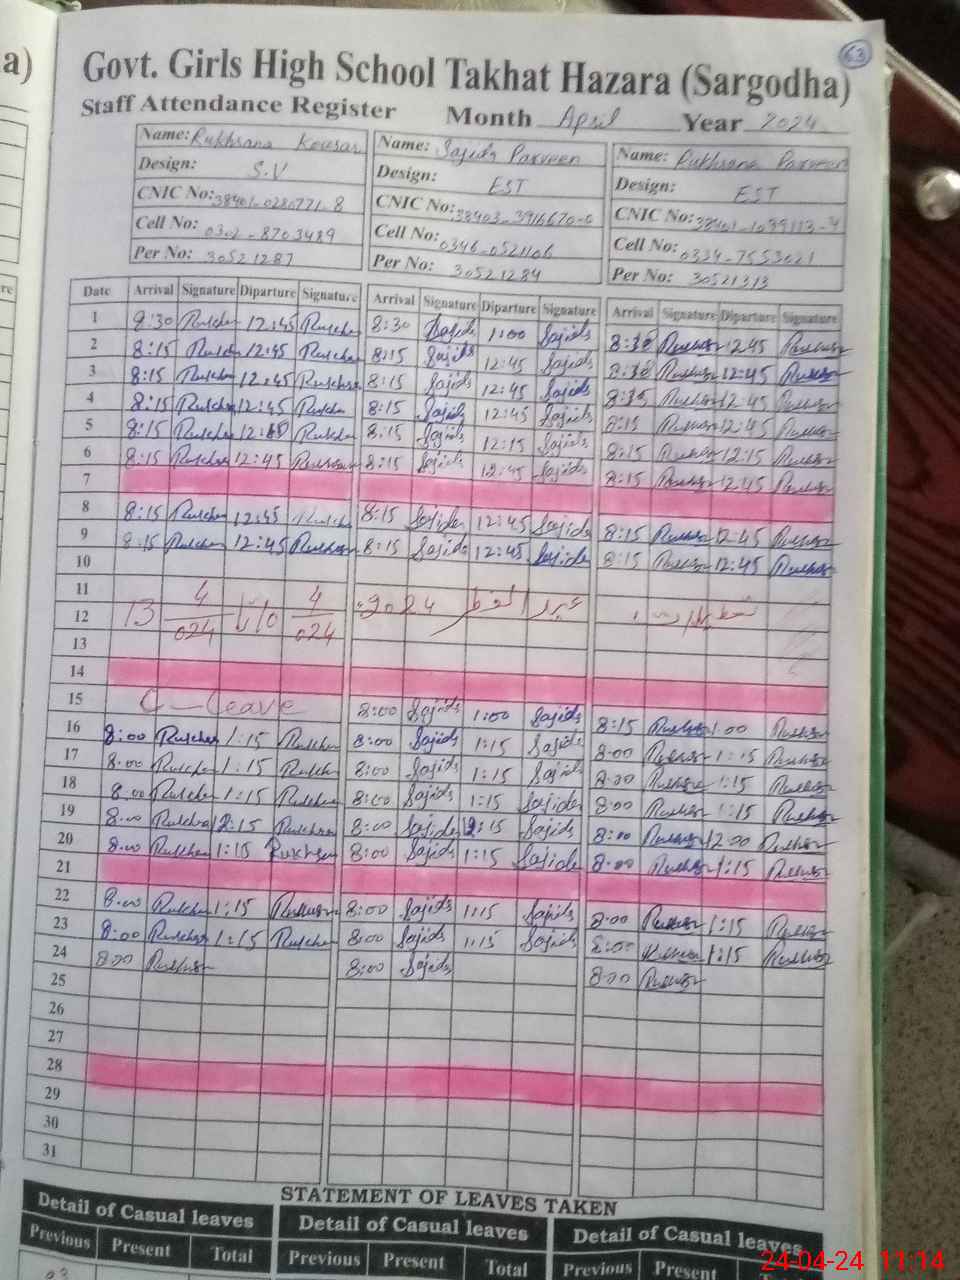 63
a)
Govt. Girls High School Takhat Hazara (Sargodha)
Staff Attendance Register Month April Year 2024
Name: Rukhsana Kousar Name: Sajida Parveen Name: Rukhsana Parveen
Design: S.V Design: EST Design: EST
CNIC No: 38401-0280771-8 CNIC No: 38403-3916670-0 CNIC No: 38401-1039113-4
Cell No: 0302-8703489 Cell No: 0346-0521106 Cell No: 0334-7553021
Per No: 30521287 Per No: 30521284 Per No: 30521313
Date Arrival Signature Diparture Signature Arrival Signature Diparture Signature Arrival Signature Diparture Signature
1 8:30 12:45 8:30 Sajida 1:00 Sajida 8:30 12:45
2 8:15 12:45 8:15 Sajida 12:45 Sajida 8:30 12:45
3 8:15 12:45 8:15 Sajida 12:45 Sajida 8:15 12:45
4 8:15 12:45 8:15 Sajida 12:45 Sajida 8:15 12:45
5 8:15 12:15 8:15 Sajida 12:15 Sajida 8:15 12:15
6 8:15 12:45 8:15 Sajida 12:45 Sajida 8:15 12:45
7
8 8:15 12:45 8:15 Sajida 12:45 Sajida 8:15 12:45
9 8:15 12:45 8:15 Sajida 12:45 Sajida 8:15 12:45
10
11
12 13 4/024 تا 10 4/024 2024 عید الفطر تعطیلات
13
14
15 C-leave 8:00 Sajida 1:00 Sajida 8:15 1:00
16 8:00 1:15 8:00 Sajida 1:15 Sajida 8:00 1:15
17 8:00 1:15 8:00 Sajida 1:15 Sajida 8:00 1:15
18 8:00 1:15 8:00 Sajida 1:15 Sajida 8:00 1:15
19 8:00 12:15 8:00 Sajida 12:15 Sajida 8:00 12:00
20 8:00 1:15 8:00 Sajida 1:15 Sajida 8:00 1:15
21
22 8:00 1:15 8:00 Sajida 1:15 Sajida 8:00 1:15
23 8:00 1:15 8:00 Sajida 1:15 Sajida 8:00 1:15
24 8:00 8:00 Sajida 8:00
25
26
27
28
29
30
31
STATEMENT OF LEAVES TAKEN
Detail of Casual leaves Detail of Casual leaves Detail of Casual leaves
Previous Present Total Previous Present Total Previous Present
03
24-04-24 11:14